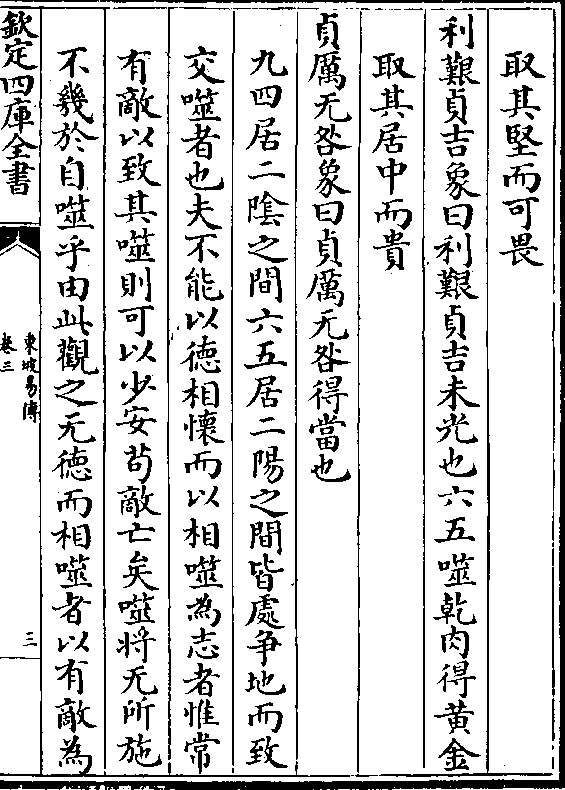 取其堅而可畏
利艱貞吉象曰利艱貞吉未光也六五噬乾肉得黄金
取其居中而貴
貞厲无咎象曰貞厲无咎得當也
九四居二陰之間六五居二陽之間皆處争地而致
交噬者也夫不能以徳相懷而以相噬為志者惟常
有敵以致其噬則可以少安苟敵亡矣噬将无所施
不幾於自噬乎由此觀之无徳而相噬者以有敵為
欽定四庫全書
東坡易傳
卷三
三